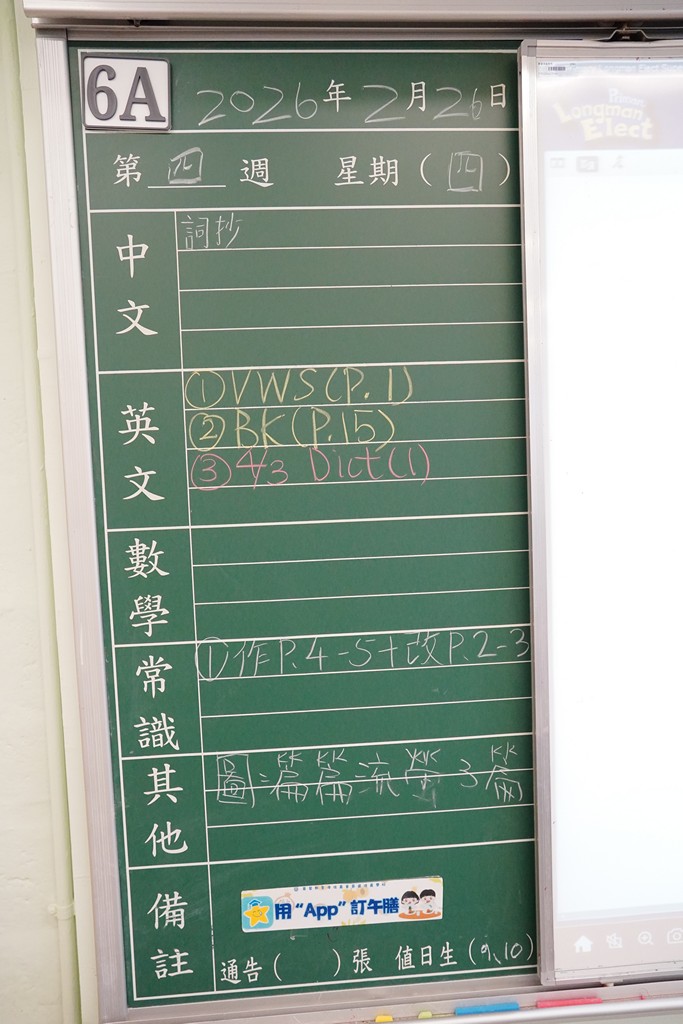 6A 2026年2月26日
第四週 星期(四)
中文
詞抄
英文
①VWS(P.1)
②BK(P.15)
③4/3 Dict(1)
數學
常識
①作P.4-5+改P.2-3
其他
圖
流
備註
用“App”訂午膳
通告( )張 值日生(9、10)
Primary
Longman
Elect